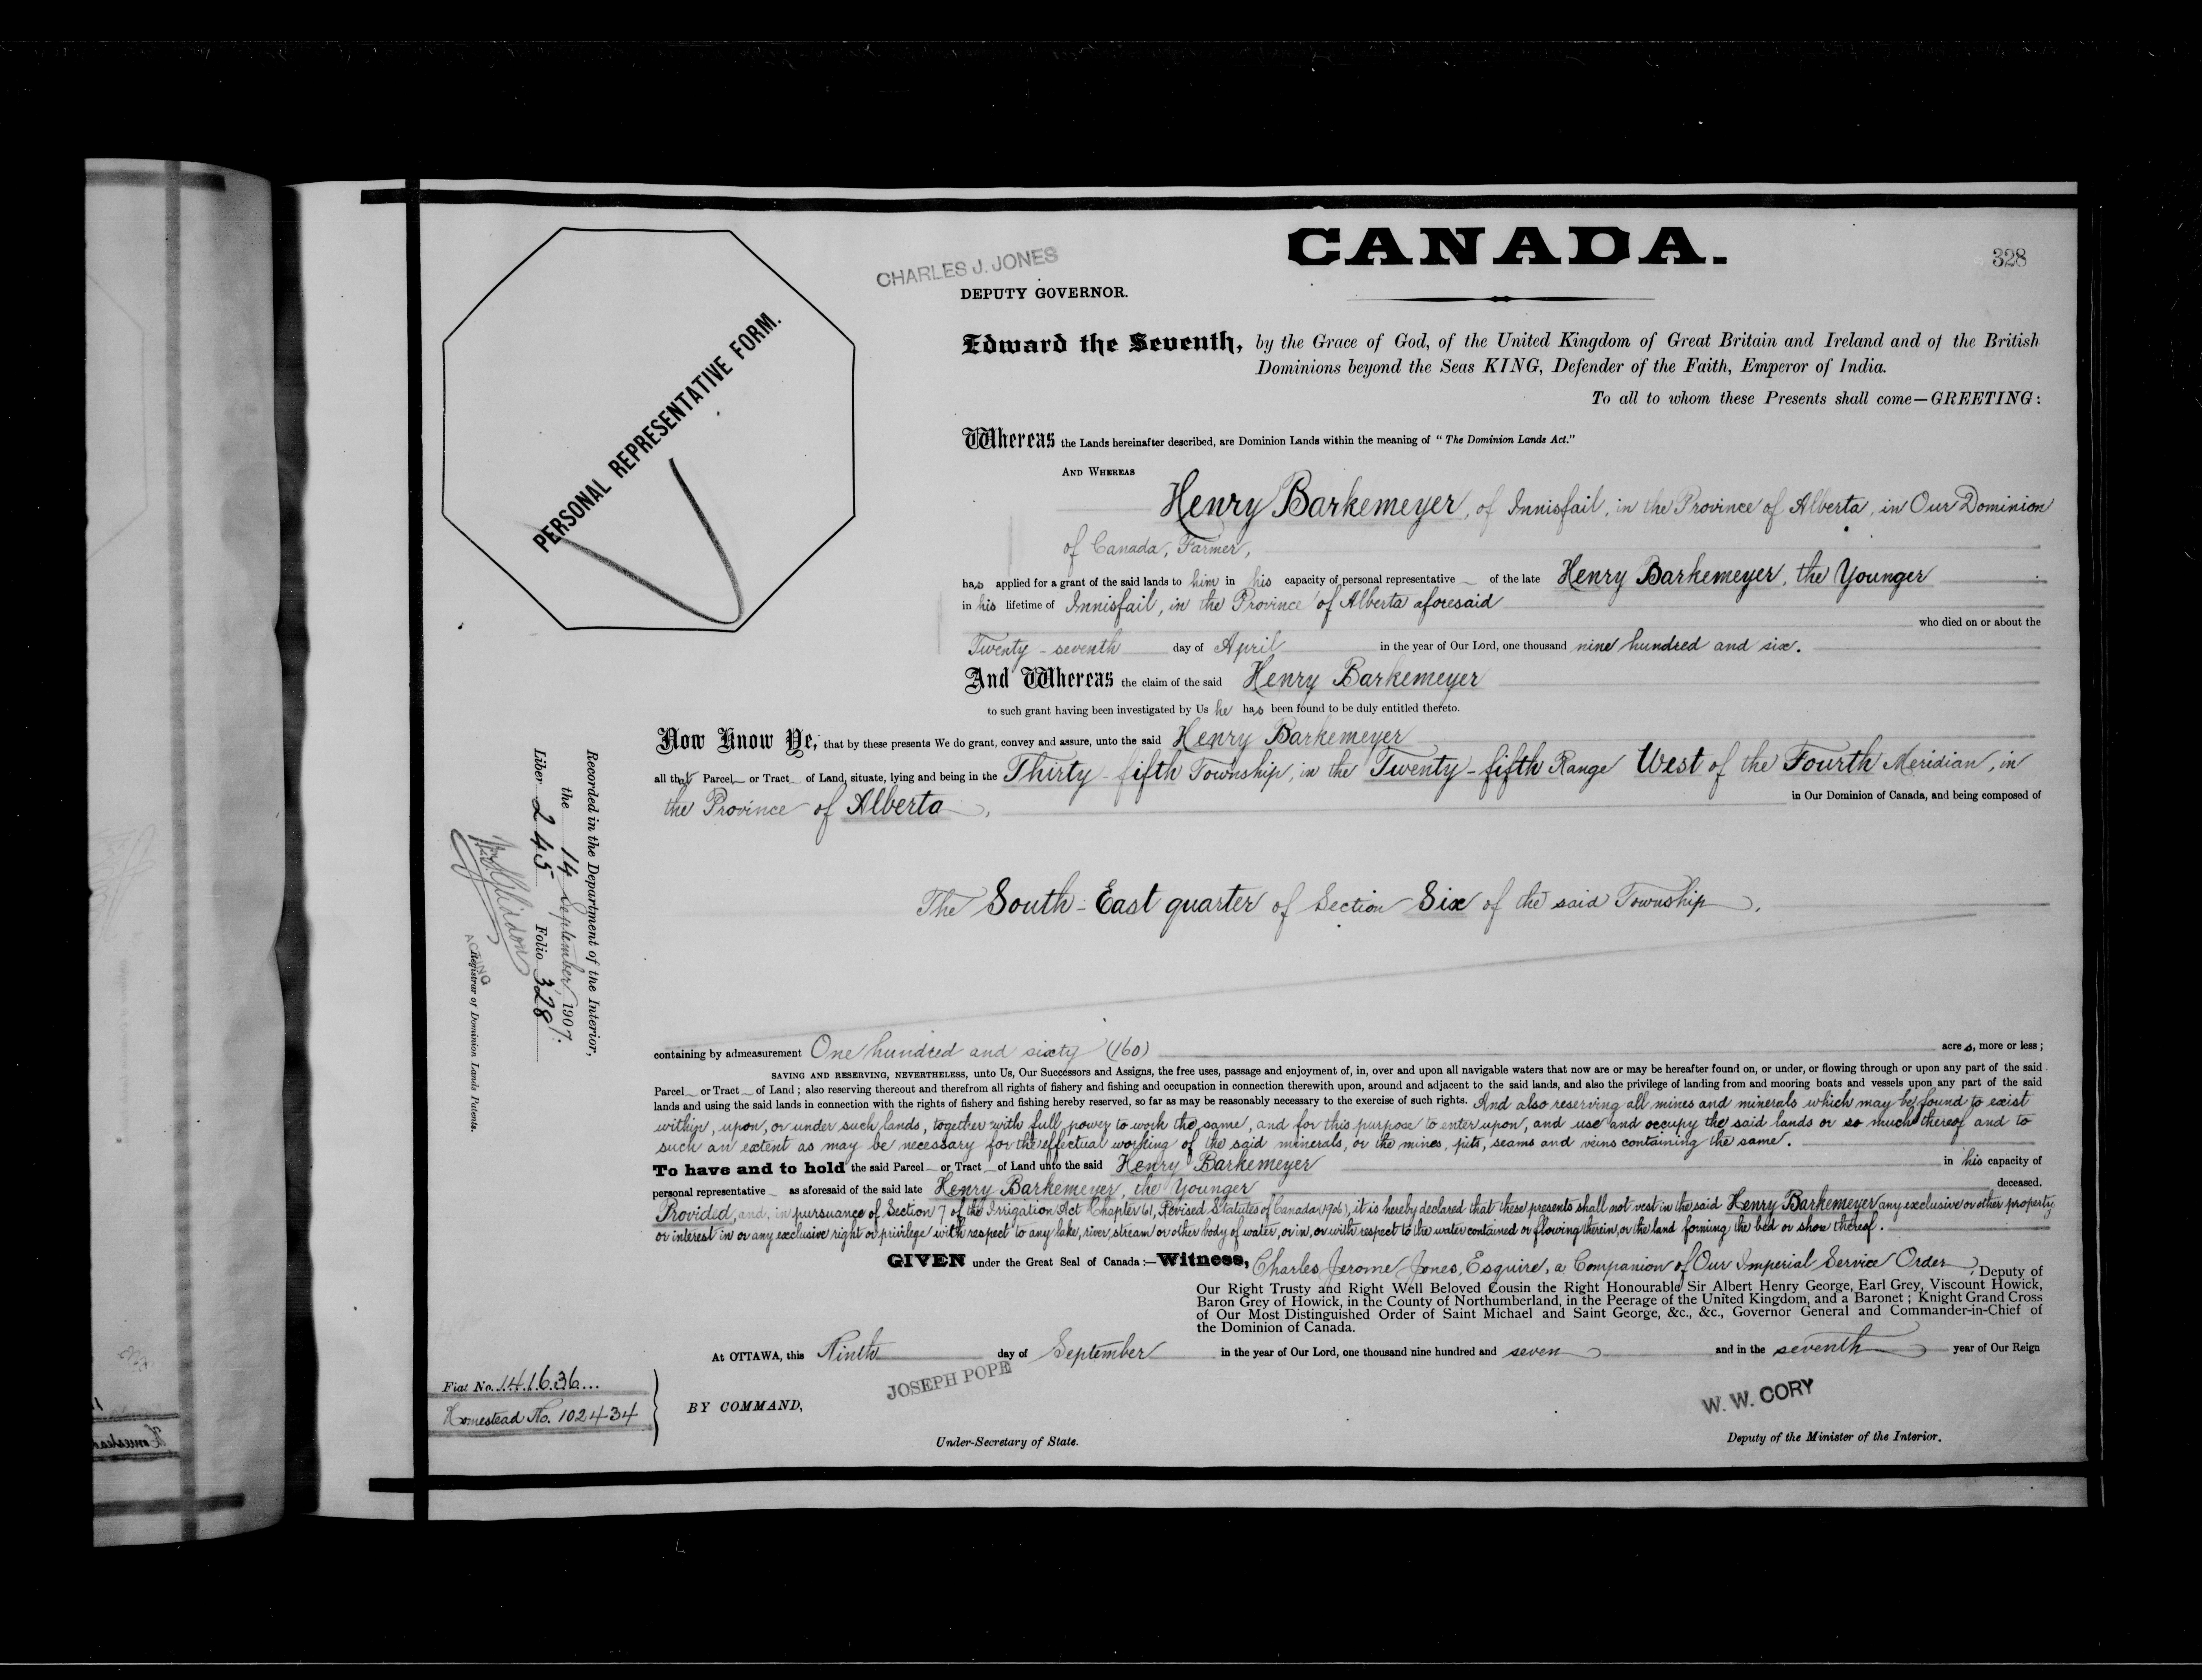 CANADA.
328
CHARLES J. JONES
DEPUTY GOVERNOR.
PERSONAL REPRESENTATIVE FORM.
Edward the Seventh, by the Grace of God, of the United Kingdom of Great Britain and Ireland and of the British
Dominions beyond the Seas KING, Defender of the Faith, Emperor of India.
To all to whom these Presents shall come—GREETING:
Whereas the Lands hereinafter described, are Dominion Lands within the meaning of "The Dominion Lands Act."
AND WHEREAS
Henry Barkemeyer, of Innisfail, in the Province of Alberta, in Our Dominion
of Canada, Farmer,
has applied for a grant of the said lands to him in his capacity of personal representative of the late Henry Barkemeyer, the Younger
in his lifetime of Innisfail, in the Province of Alberta aforesaid
who died on or about the
Twenty-seventh day of April in the year of Our Lord, one thousand nine hundred and six.
And Whereas the claim of the said Henry Barkemeyer
to such grant having been investigated by Us he has been found to be duly entitled thereto.
Now Know Ye, that by these presents We do grant, convey and assure, unto the said Henry Barkemeyer
all that Parcel or Tract of Land, situate, lying and being in the Thirty-fifth Township, in the Twenty-fifth Range West of the Fourth Meridian, in
the Province of Alberta, in Our Dominion of Canada, and being composed of
The South-East quarter of Section Six of the said Township.
containing by admeasurement One hundred and sixty (160) acres, more or less;
SAVING AND RESERVING, NEVERTHELESS, unto Us, Our Successors and Assigns, the free uses, passage and enjoyment of, in, over and upon all navigable waters that now are or may be hereafter found on, or under, or flowing through or upon any part of the said
Parcel or Tract of Land; also reserving thereout and therefrom all rights of fishery and fishing and occupation in connection therewith upon, around and adjacent to the said lands, and also the privilege of landing from and mooring boats and vessels upon any part of the said
lands and using the said lands in connection with the rights of fishery and fishing hereby reserved, so far as may be reasonably necessary to the exercise of such rights. And also reserving all mines and minerals which may be found to exist
within, upon, or under such lands, together with full power to work the same, and for this purpose to enter upon, and use and occupy the said lands or so much thereof and to
such an extent as may be necessary for the effectual working of the said minerals, or the mines, pits, seams and veins containing the same.
To have and to hold the said Parcel or Tract of Land unto the said Henry Barkemeyer in his capacity of
personal representative as aforesaid of the said late Henry Barkemeyer, the Younger deceased.
Provided, and, in pursuance of Section 7 of the Irrigation Act Chapter 61, Revised Statutes of Canada (1906), it is hereby declared that these presents shall not vest in the said Henry Barkemeyer any exclusive or other property
or interest in or any exclusive right or privilege with respect to any lake, river, stream or other body of water, or in, or with respect to the water contained or flowing therein, or the land forming the bed or shore thereof.
GIVEN under the Great Seal of Canada:—Witness, Charles Jerome Jones, Esquire, a Companion of Our Imperial Service Order, Deputy of
Our Right Trusty and Right Well Beloved Cousin the Right Honourable Sir Albert Henry George, Earl Grey, Viscount Howick,
Baron Grey of Howick, in the County of Northumberland, in the Peerage of the United Kingdom, and a Baronet; Knight Grand Cross
of Our Most Distinguished Order of Saint Michael and Saint George, &c., &c., Governor General and Commander-in-Chief of
the Dominion of Canada.
At OTTAWA, this Ninth day of September in the year of Our Lord, one thousand nine hundred and seven and in the seventh year of Our Reign
JOSEPH POPE
W. W. CORY
BY COMMAND,
Under-Secretary of State.
Deputy of the Minister of the Interior.
Fiat No. 141636...
Homestead No. 102434
Recorded in the Department of the Interior,
the 14 September, 1907.
Liber 245 Folio 328
ACTING
Registrar of Dominion Lands Patents.